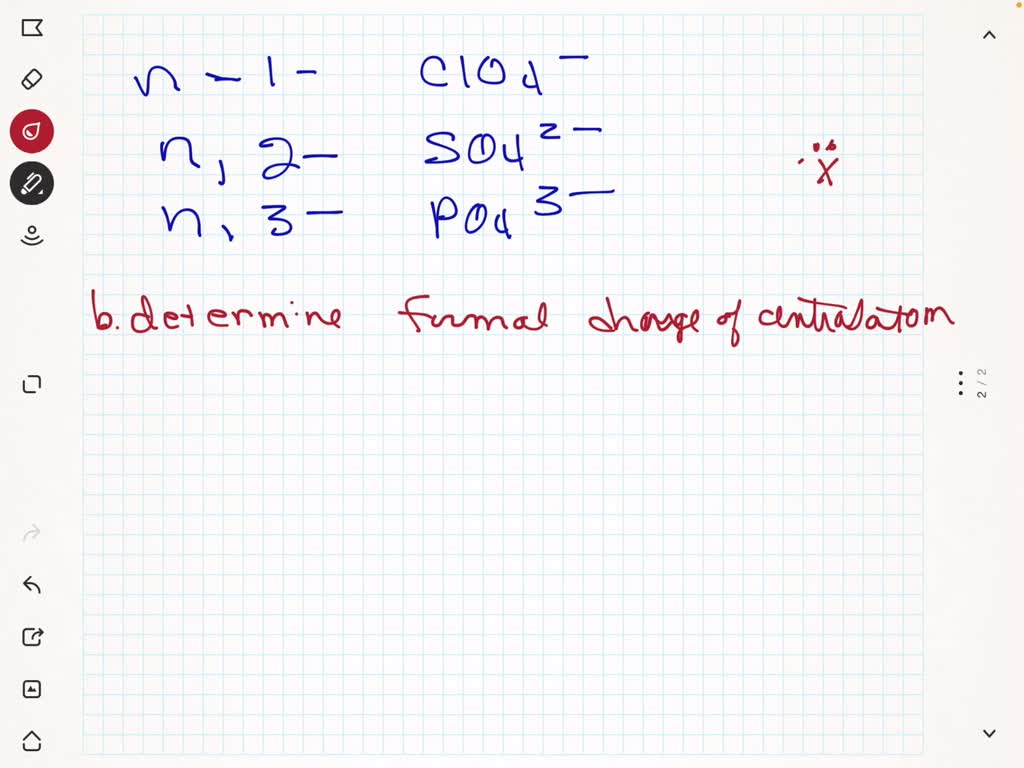 n - 1- ClO4 -
n, 2- SO4 2-
X
n, 3- PO4 3-
b. determine formal charge of central atom
2 / 2